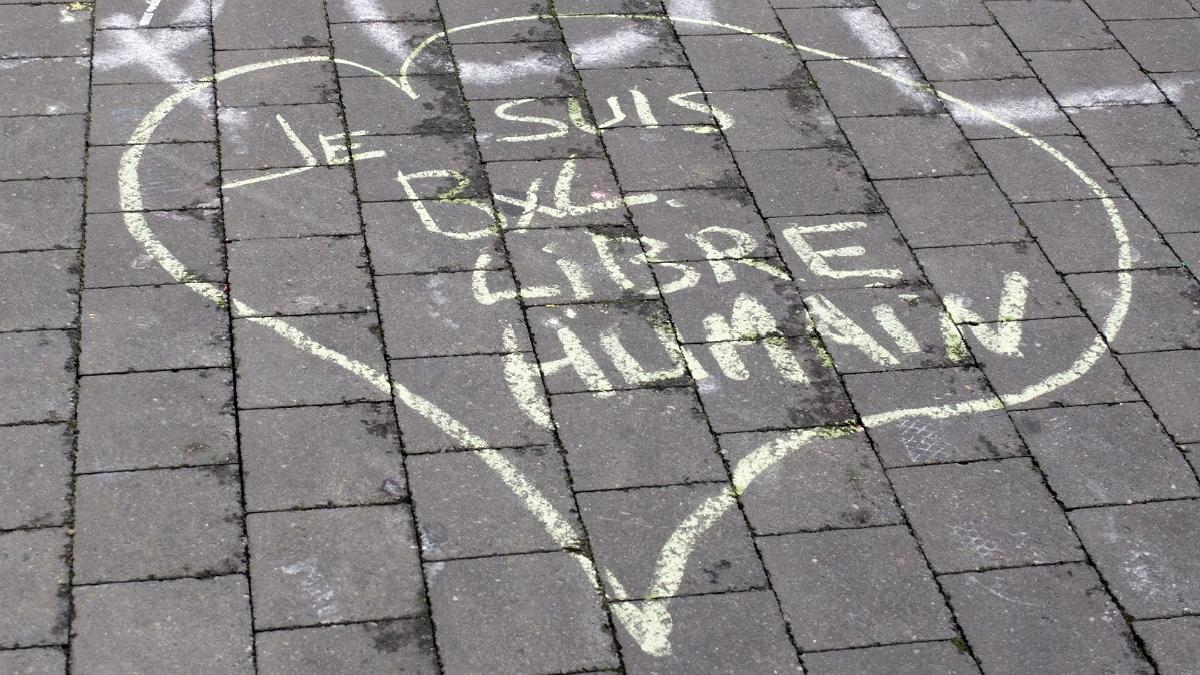 JE SUIS
BXL.
LiBRE
HUMAiN